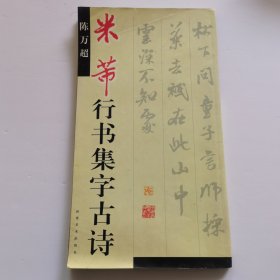 陈万超
米芾
行书集字古诗
松下問童子言師採
藥去祇在此山中
雲深不知處